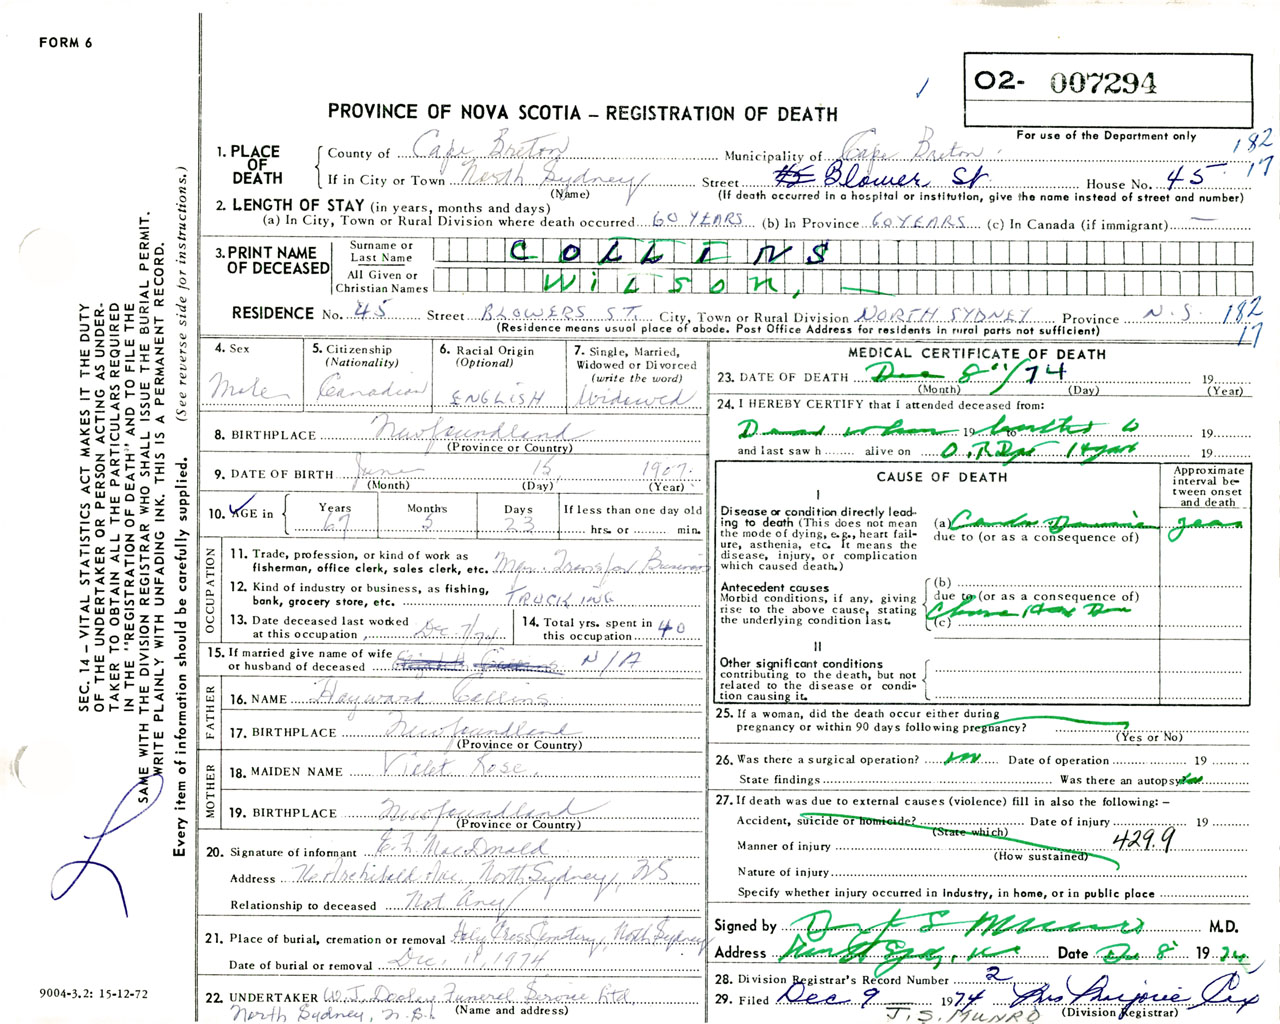 FORM 6
O2- 007294
PROVINCE OF NOVA SCOTIA – REGISTRATION OF DEATH
For use of the Department only
182
17
1. PLACE OF DEATH
County of Cape Breton Municipality of Cape Breton
If in City or Town North Sydney Street Blower St House No. 45
(Name) (If death occurred in a hospital or institution, give the name instead of street and number)
2. LENGTH OF STAY (in years, months and days)
(a) In City, Town or Rural Division where death occurred 60 YEARS (b) In Province 60 YEARS (c) In Canada (if immigrant) —
3. PRINT NAME OF DECEASED
Surname or Last Name COLLINS
All Given or Christian Names WILSON,
RESIDENCE No. 45 Street BLOWERS ST. City, Town or Rural Division NORTH SYDNEY Province N.S. 182
17
(Residence means usual place of abode. Post Office Address for residents in rural parts not sufficient)
4. Sex Male
5. Citizenship (Nationality) Canadian
6. Racial Origin (Optional) ENGLISH
7. Single, Married, Widowed or Divorced (write the word) Widowed
8. BIRTHPLACE Newfoundland
(Province or Country)
9. DATE OF BIRTH June 15 1907
(Month) (Day) (Year)
10. AGE in Years 67 Months 5 Days 23 If less than one day old hrs. or min.
OCCUPATION
11. Trade, profession, or kind of work as fisherman, office clerk, sales clerk, etc. Mgr. Transfer Business
12. Kind of industry or business, as fishing, bank, grocery store, etc. TRUCKING
13. Date deceased last worked at this occupation Dec 7/74
14. Total yrs. spent in this occupation 40
15. If married give name of wife or husband of deceased N/A
FATHER
16. NAME Hayward Collins
17. BIRTHPLACE Newfoundland
(Province or Country)
MOTHER
18. MAIDEN NAME Violet Rose.
19. BIRTHPLACE Newfoundland
(Province or Country)
20. Signature of informant MacDonald
Address Archibald Ave, North Sydney, NS
Relationship to deceased Not Any
21. Place of burial, cremation or removal Holy Cross Cemetery, North Sydney
Date of burial or removal Dec. 11, 1974
22. UNDERTAKER W. J. Dooley Funeral Service Ltd
North Sydney, N.S.
(Name and address)
MEDICAL CERTIFICATE OF DEATH
23. DATE OF DEATH Dec 8 /74 19
(Month) (Day) (Year)
24. I HEREBY CERTIFY that I attended deceased from:
Dead when 19 to 19
and last saw h alive on 19
CAUSE OF DEATH
Approximate interval between onset and death
I
Disease or condition directly leading to death (This does not mean the mode of dying, e.g., heart failure, asthenia, etc. It means the disease, injury, or complication which caused death.)
(a)
due to (or as a consequence of)
Antecedent causes
Morbid conditions, if any, giving rise to the above cause, stating the underlying condition last.
(b)
due to (or as a consequence of)
(c)
II
Other significant conditions contributing to the death, but not related to the disease or condition causing it.
25. If a woman, did the death occur either during pregnancy or within 90 days following pregnancy?
(Yes or No)
26. Was there a surgical operation? no Date of operation 19
State findings Was there an autopsy no
27. If death was due to external causes (violence) fill in also the following: –
Accident, suicide or homicide? Date of injury 19
(State which)
Manner of injury 429.9
(How sustained)
Nature of injury
Specify whether injury occurred in industry, in home, or in public place
Signed by Munro M.D.
Address North Sydney, NS Date Dec 8 19 74
28. Division Registrar's Record Number 2
29. Filed Dec 9 1974 Mrs Marjorie Cox
(Division Registrar)
J. S. MUNRO
SEC. 14 – VITAL STATISTICS ACT MAKES IT THE DUTY
OF THE UNDERTAKER OR PERSON ACTING AS UNDER-
TAKER TO OBTAIN ALL THE PARTICULARS REQUIRED
IN THE "REGISTRATION OF DEATH" AND TO FILE THE
SAME WITH THE DIVISION REGISTRAR WHO SHALL ISSUE THE BURIAL PERMIT.
WRITE PLAINLY WITH UNFADING INK. THIS IS A PERMANENT RECORD.
Every item of information should be carefully supplied. (See reverse side for instructions.)
9004-3.2: 15-12-72